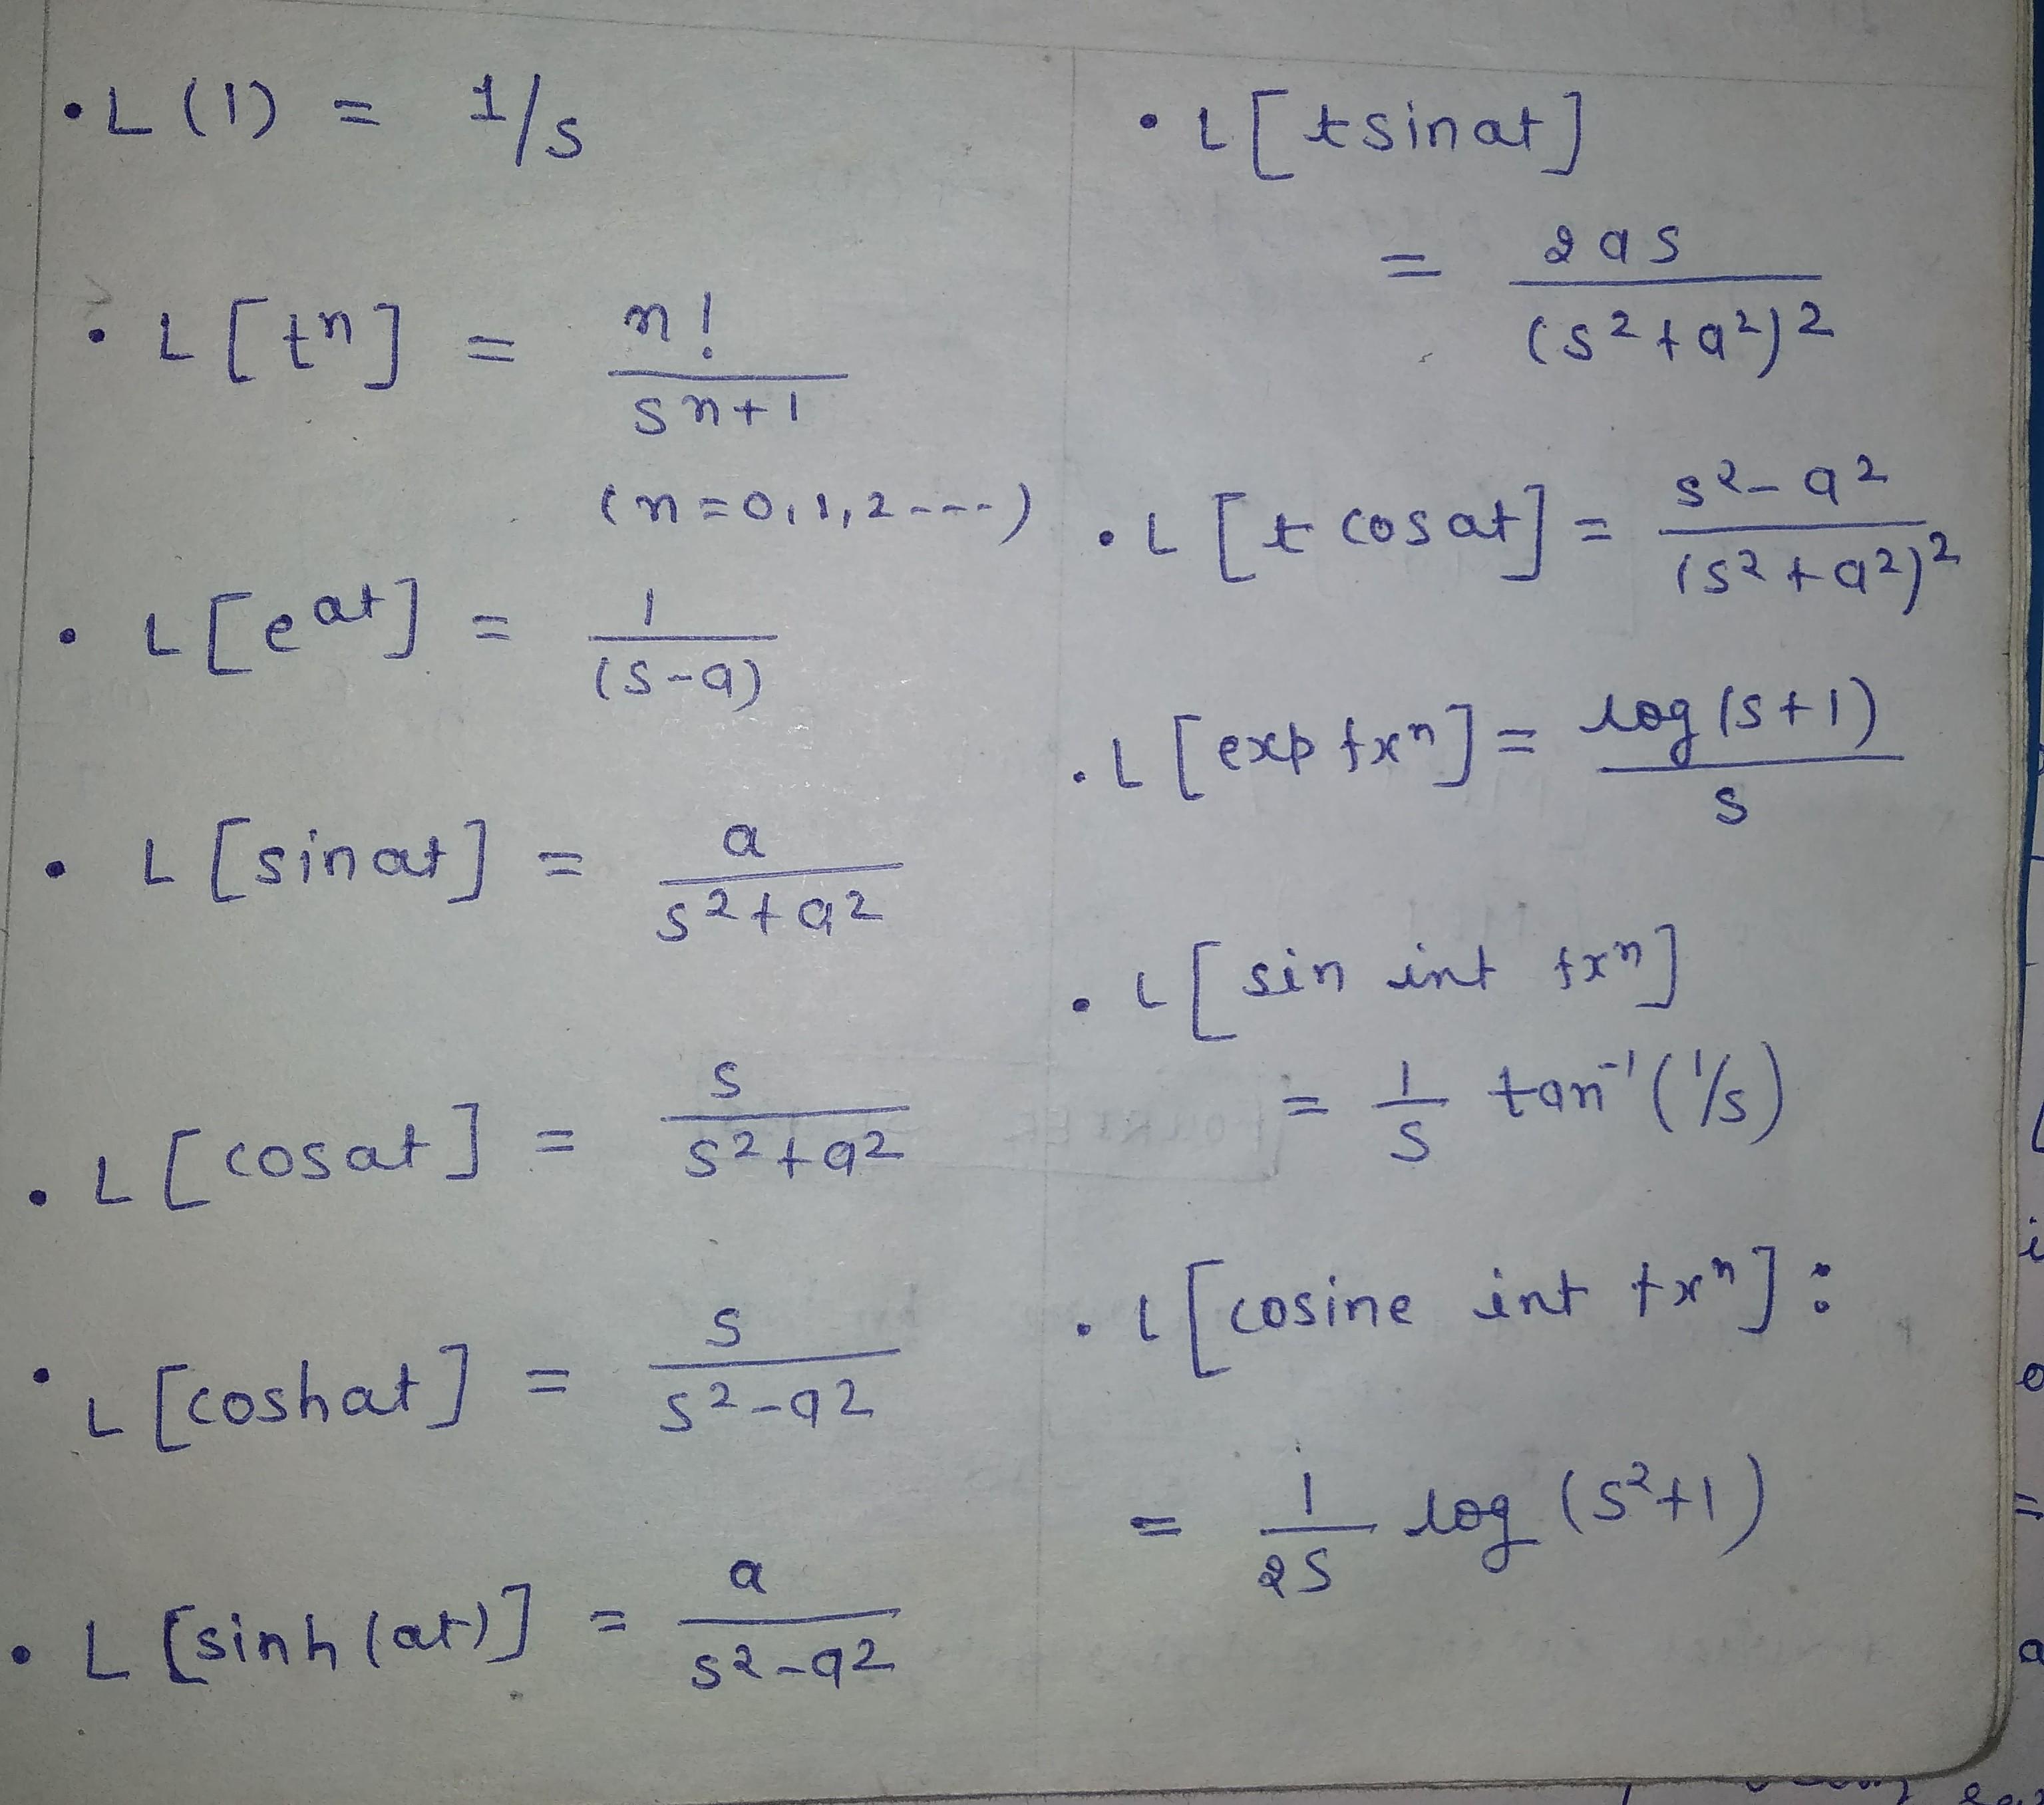 • L (1) = 1/s
• L [tⁿ] = n! / sⁿ⁺¹
(n = 0, 1, 2 ----)
• L [e^at] = 1 / (s-a)
• L [sin at] = a / s² + a²
• L [cos at] = s / s² + a²
• L [coshat] = s / s² - a²
• L [sinh (at)] = a / s² - a²
• L [t sin at]
= 2as / (s² + a²)²
• L [t cos at] = s² - a² / (s² + a²)²
• L [exp fxⁿ] = log (s+1) / s
• L [sin int fxⁿ]
= 1/s tan⁻¹ (1/s)
• L [cosine int fxⁿ] :
= 1/2s log (s²+1)